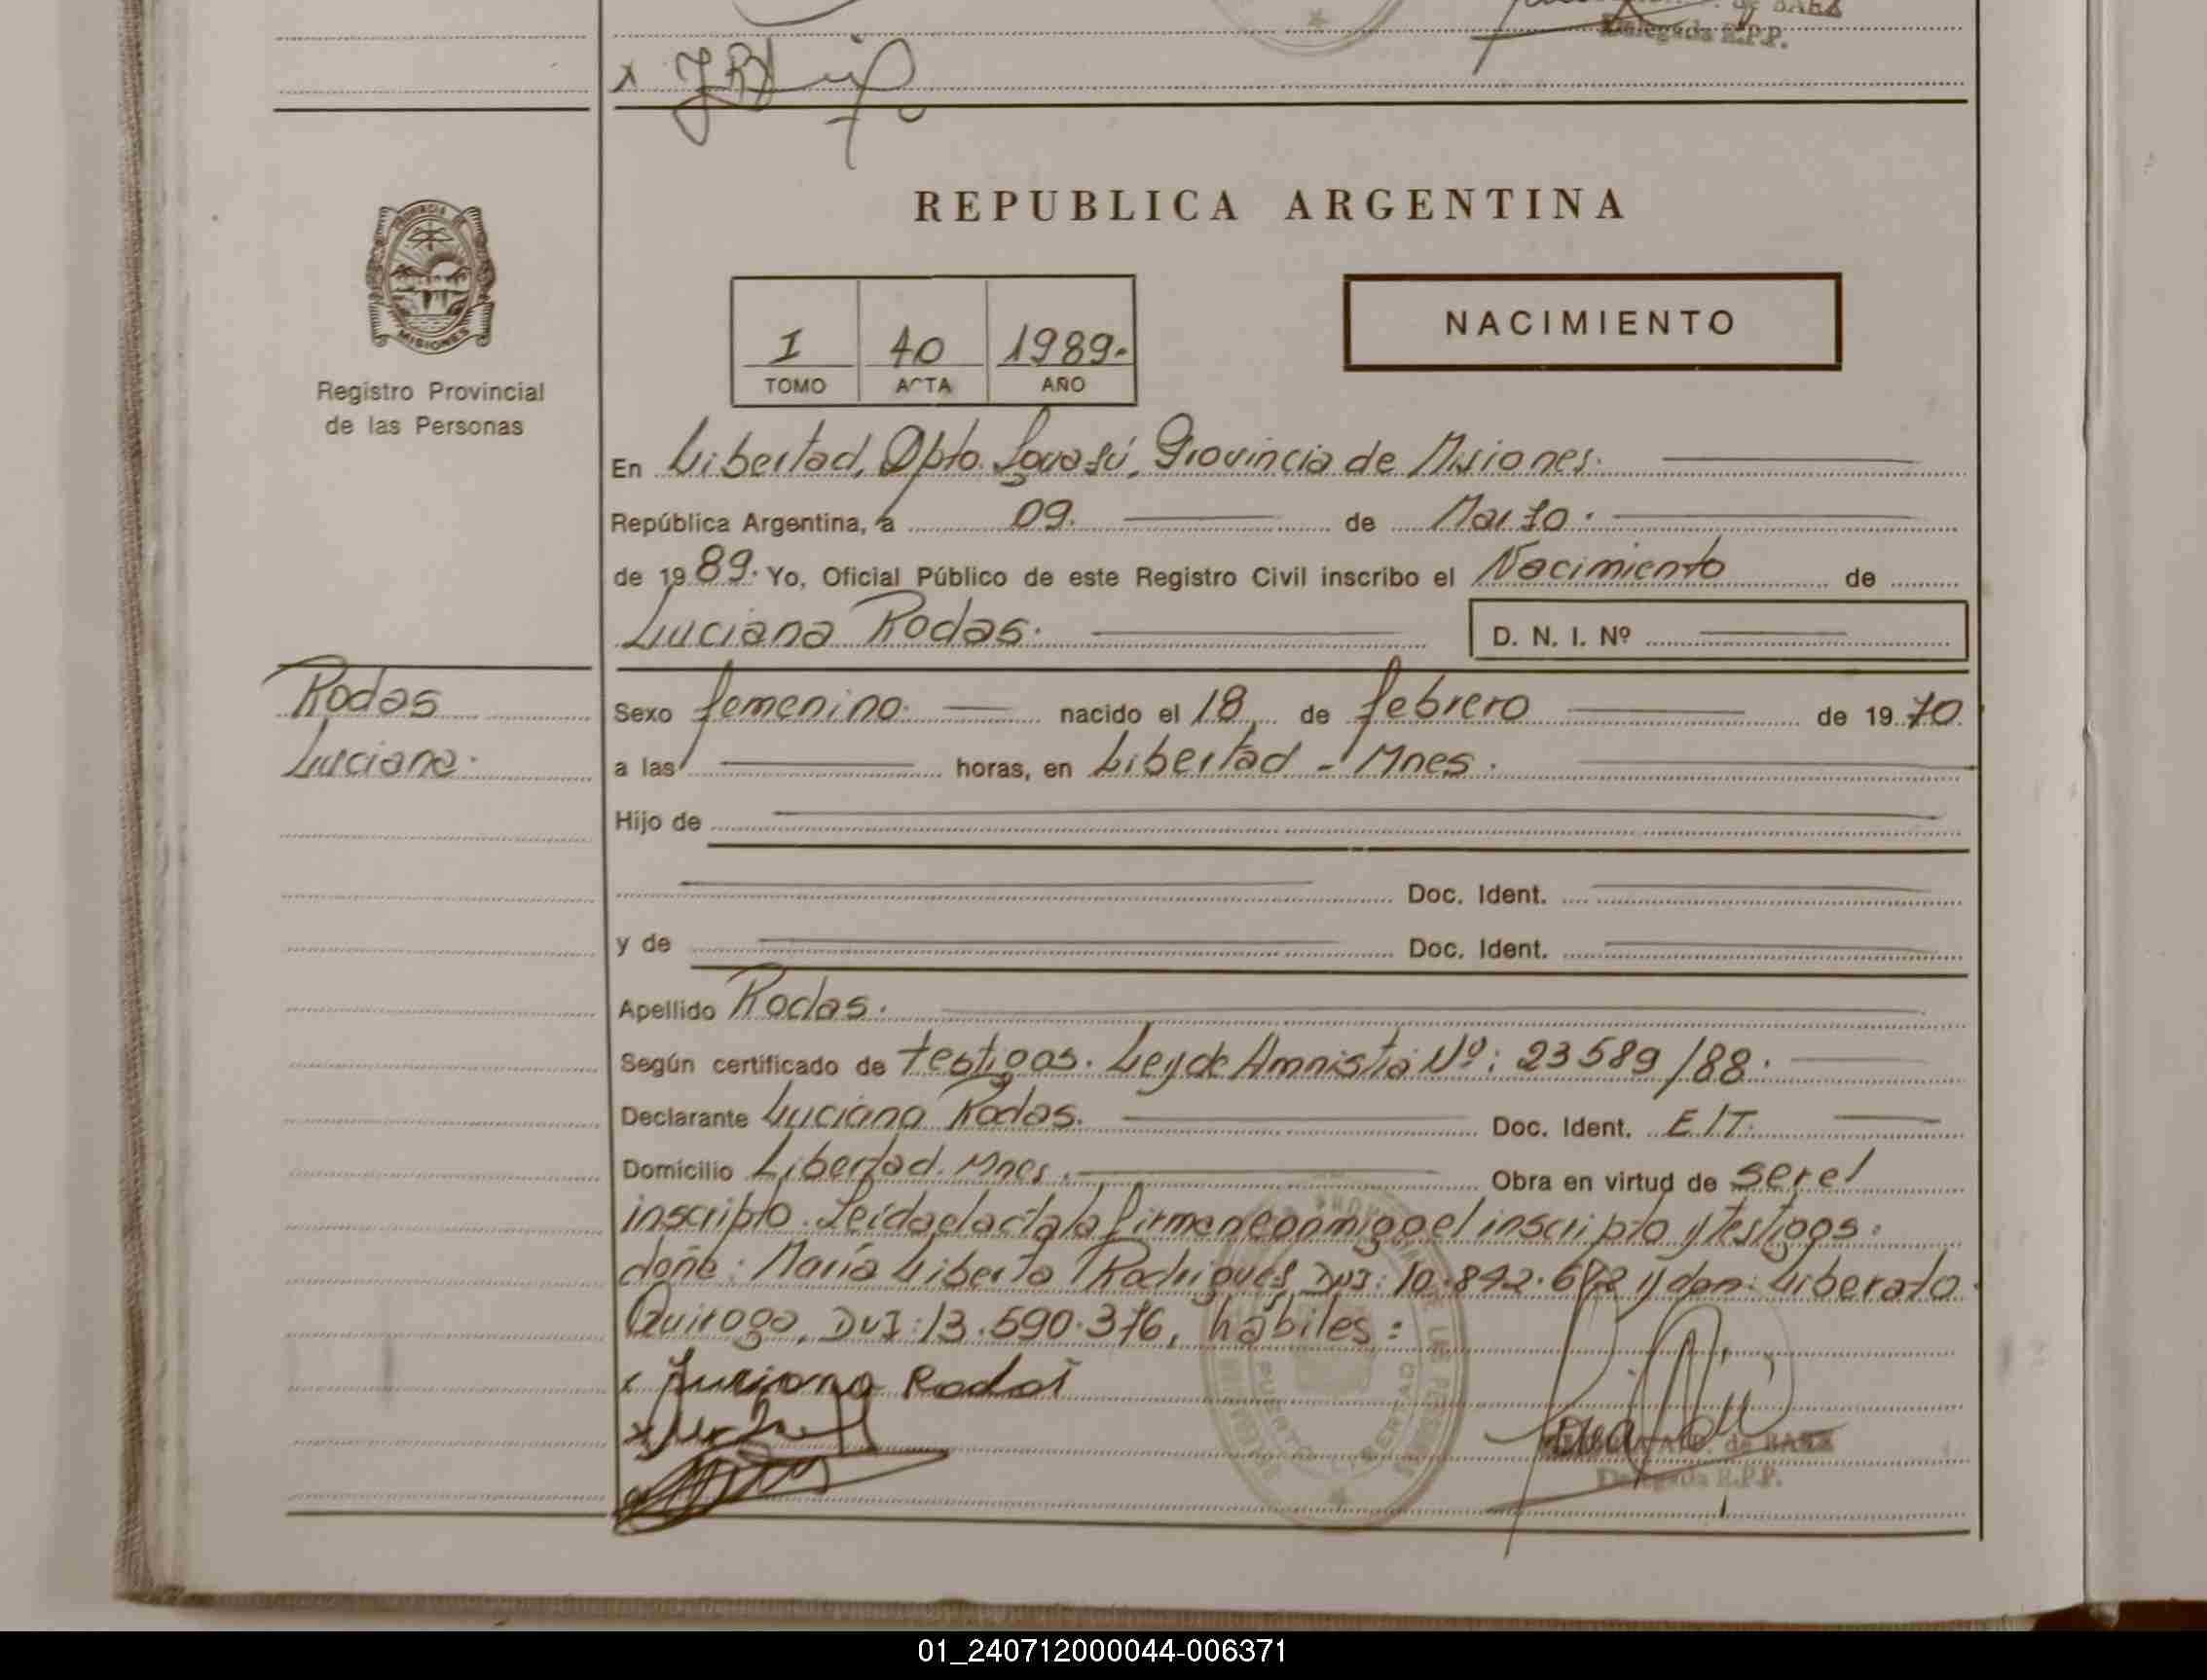 de BARA
Delegada R.P.P.
x
PROVINCIA DE
MISIONES
Registro Provincial
de las Personas
REPUBLICA ARGENTINA
NACIMIENTO
I 40 1989.
TOMO ACTA AÑO
En Libertad, Dpto. Iguazú, Provincia de Misiones.
República Argentina, a 09. de Marzo.
de 1989. Yo, Oficial Público de este Registro Civil inscribo el Nacimiento de
Luciana Rodas.
D. N. I. Nº
Rodas
Luciana.
Sexo femenino. nacido el 18 de febrero de 1970
a las horas, en Libertad - Mnes.
Hijo de
Doc. Ident.
y de Doc. Ident.
Apellido Rodas.
Según certificado de testigos. Ley de Amnistía Nº: 23589/88.
Declarante Luciana Rodas. Doc. Ident. E/T.
Domicilio Libertad. Mnes. Obra en virtud de ser el
inscripto. Leída el acta la firman conmigo el inscripto y testigos:
doña: María Liberta Rodrigues, DNI: 10.842.672 y don: Liberato
Quiroga, DNI: 13.590.376, hábiles:
x Luciana Rodas
x
PUERTO LIBERTAD
de BARA
Delegada R.P.P.
01_240712000044-006371